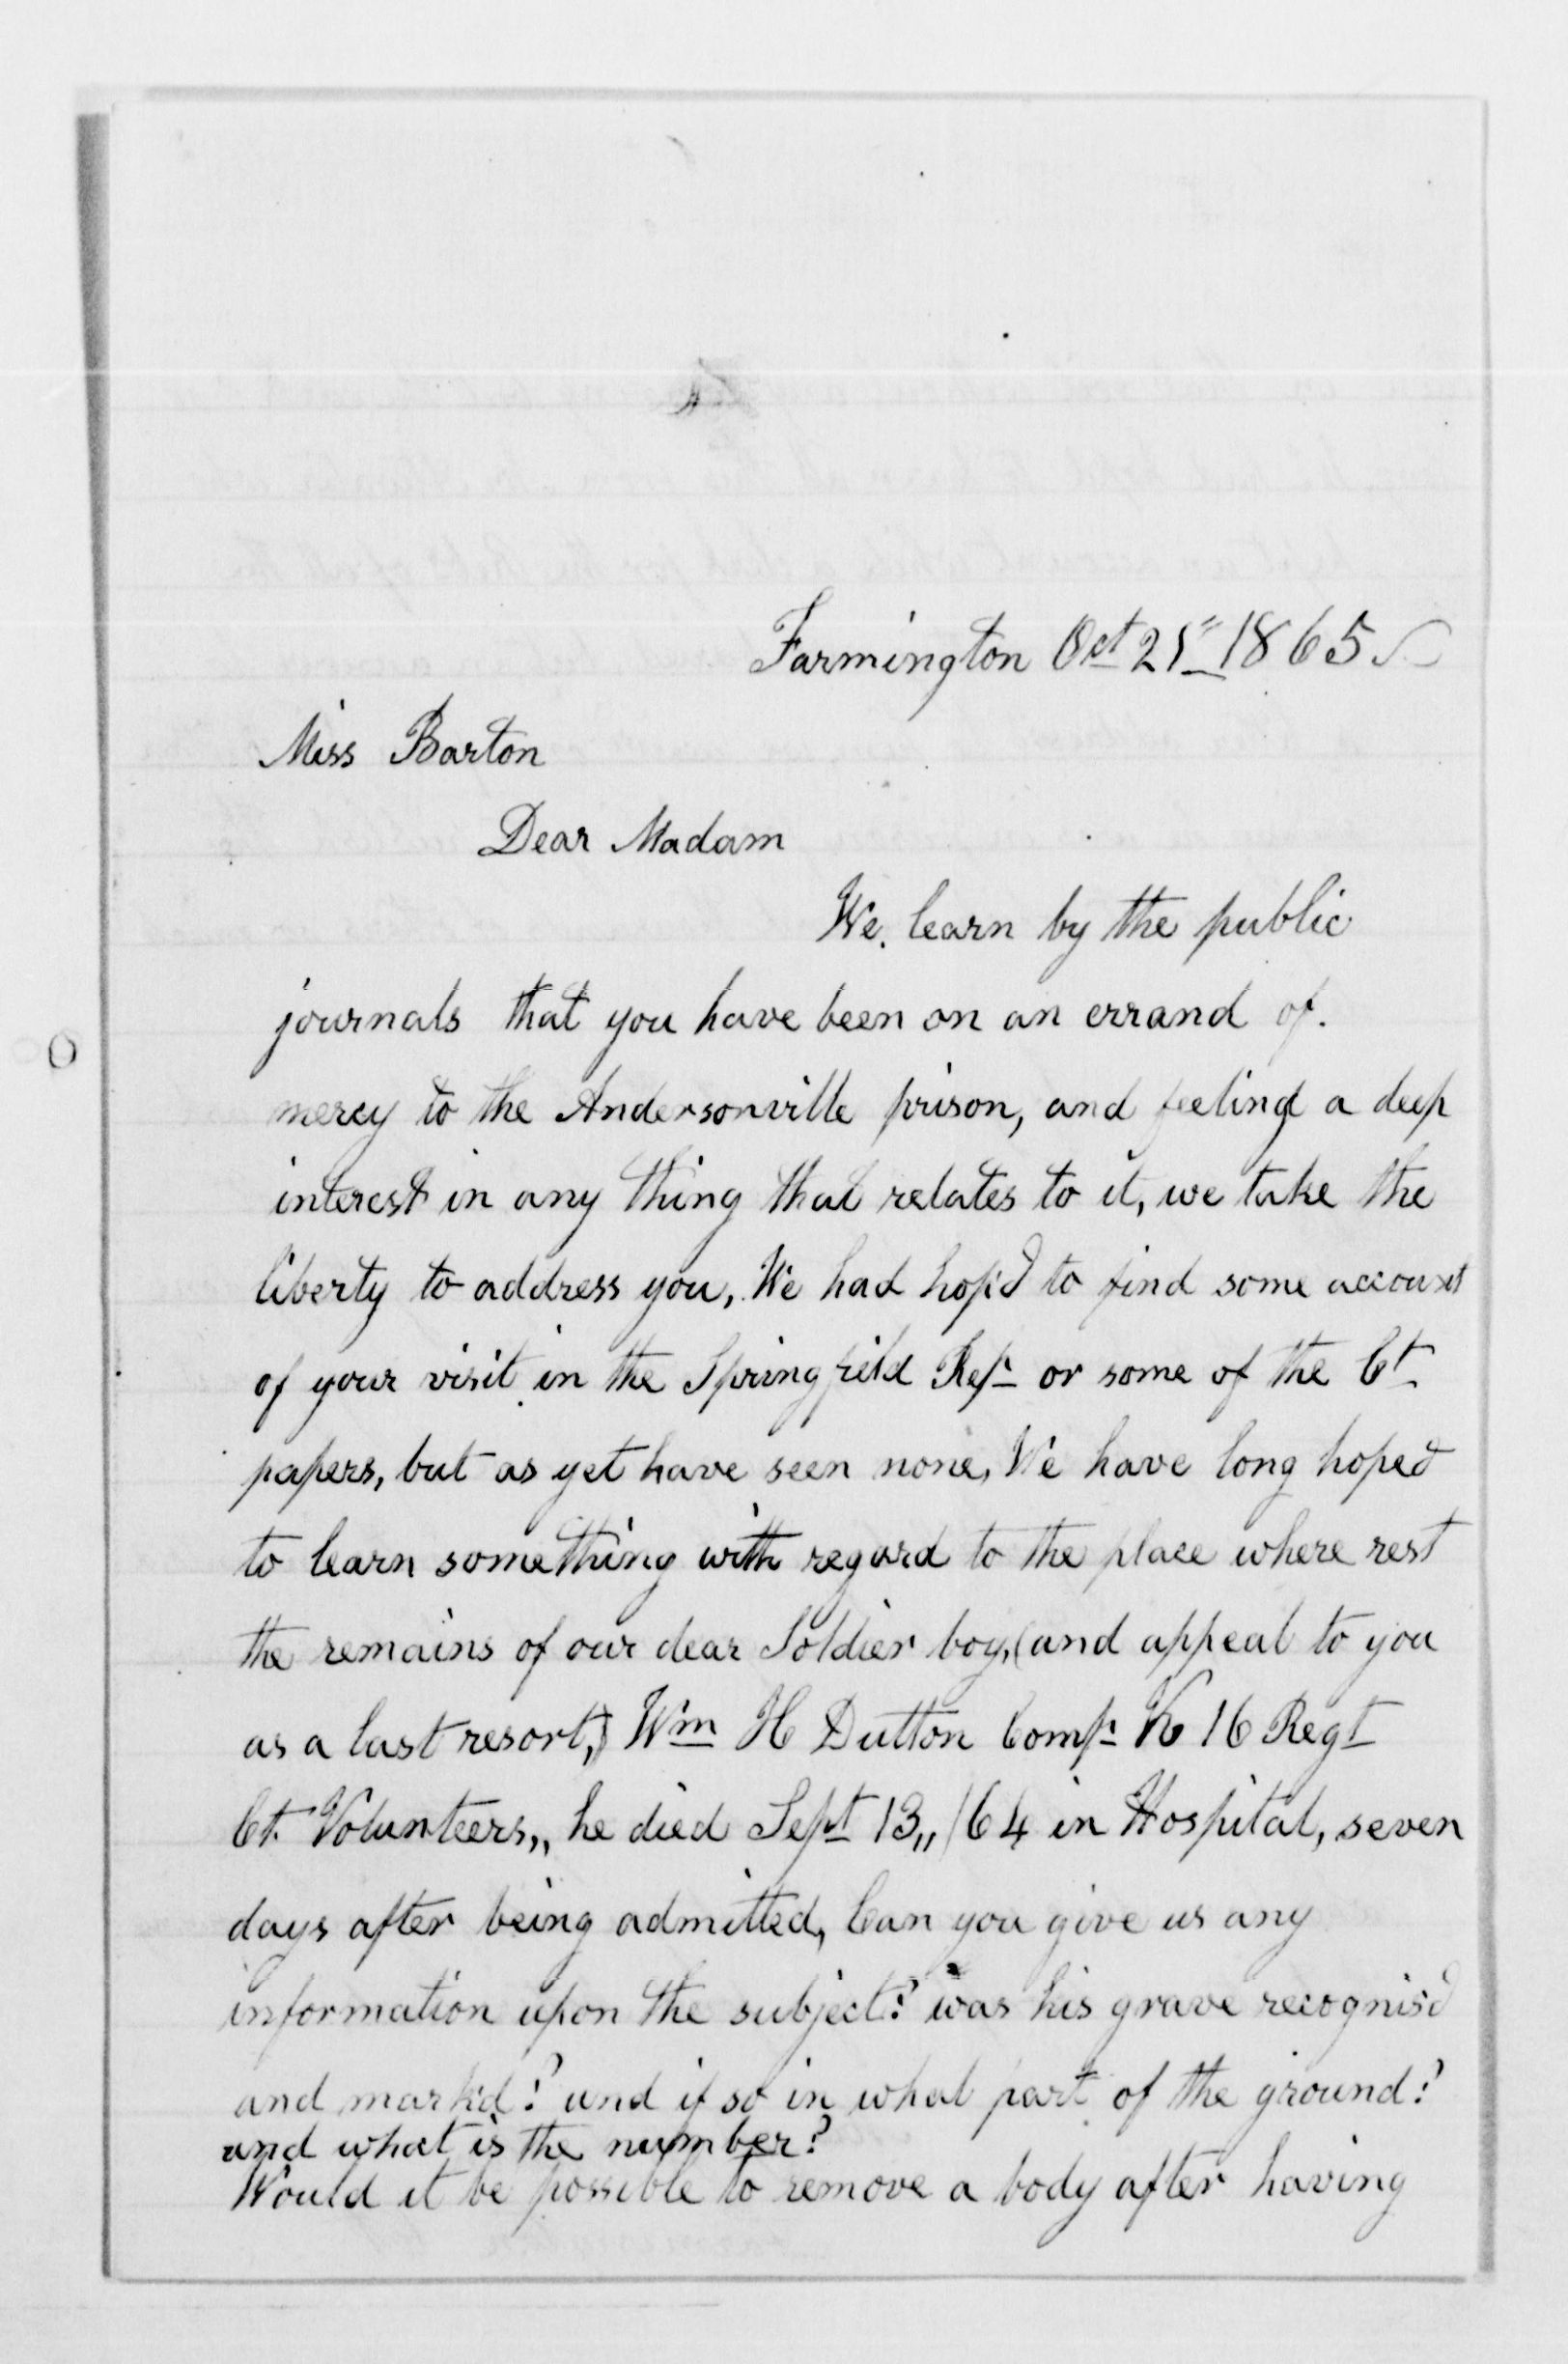 Farmington Oct 21st 1865
Miss Barton
Dear Madam
We learn by the public
journals that you have been on an errand of
mercy to the Andersonville prison, and feeling a deep
interest in any thing that relates to it, we take the
liberty to address you, We had hop'd to find some account
of your visit in the Springfield Rep or some of the Ct
papers, but as yet have seen none, We have long hoped
to learn something with regard to the place where rest
the remains of our dear Soldier boy, (and appeal to you
as a last resort,) Wm H Dutton Comp K 16 Regt
Ct. Volunteers,, he died Sept 13,, /64 in Hospital, seven
days after being admitted, Can you give us any
information upon the subject? was his grave recognis'd
and mark'd? and if so in what part of the ground?
and what is the number?
Would it be possible to remove a body after having